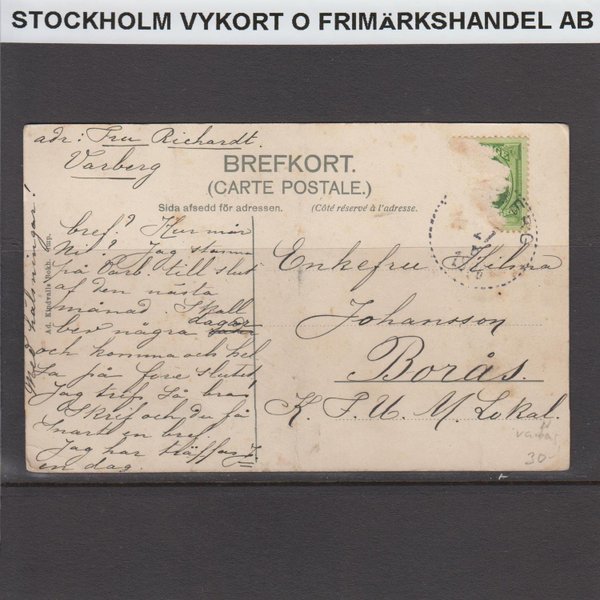 STOCKHOLM VYKORT O FRIMÄRKSHANDEL AB
adr: Fru Richardt.
Varberg
BREFKORT.
(CARTE POSTALE.)
Sida afsedd för adressen.
(Côté réservé à l'adresse.
bref? Hur mår
Ni? Jag stannar
på Varb. till slut
af den nästa
månad. Skall
ber några dagar
och komma och hel
sa på före slutet
Jag
Så bra
Skrif och du få
Snart en bref.
Jag har träffat
en dag.
Med hälsningar!
Ad. Kindvalls Bokh. Imp.
Enkefru Hilma
Johansson
Borås.
K. F. U. M. Lokal.
30-